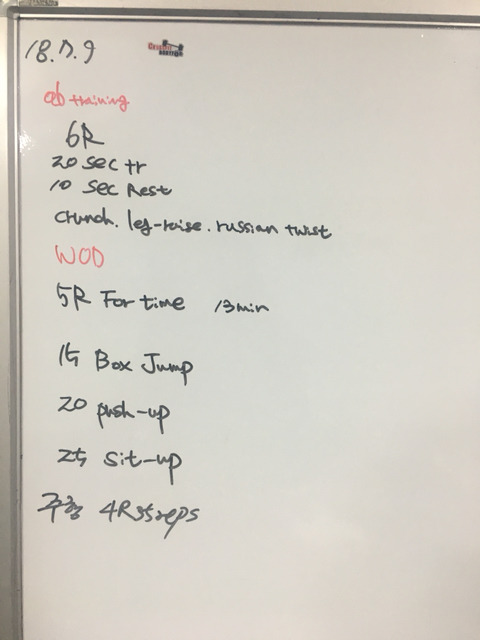 18.7.9
ab training
6R
20 sec tr
10 sec Rest
crunch. leg-raise. russian twist
WOD
5R For time 13min
15 Box Jump
20 push-up
25 sit-up
주형 4R 35reps